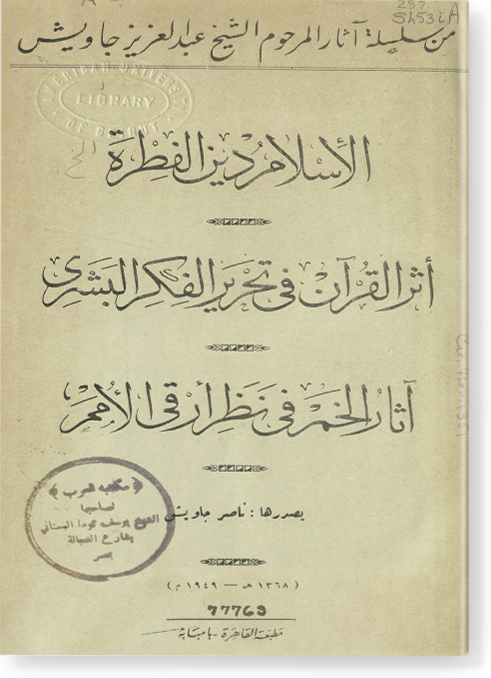 297.
Sh53iA
من سلسلة آثار المرحوم الشيخ عبد العزيز جاويش
LIBRARY
OF BEIRUT
الأسلام دين الفطرة
أثر القرآن في تحرير الفكر البشرى
آثار الخمر في نظر أرقى الأمم
يصدرها : ناصر جاويش
مكتبة العرب
لصاحبها
الشيخ يوسف توما البستاني
بشارع الفجالة
بمصر
( ١٣٦٨ هـ — ١٩٤٩ م )
77769
مطبعة القاهرة - بامبابة